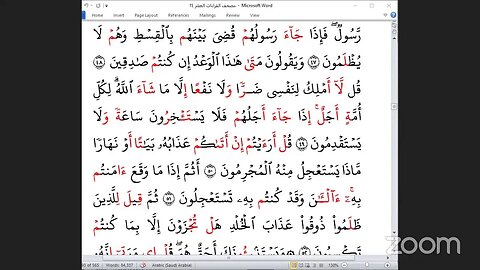 مصحف القراءات العشر 11 - Microsoft Word
رَّسُولٌ ۖ فَإِذَا جَآءَ رَسُولُهُمْ قُضِيَ بَيْنَهُم بِٱلْقِسْطِ وَهُمْ لَا
يُظْلَمُونَ ٤٧ وَيَقُولُونَ مَتَىٰ هَٰذَا ٱلْوَعْدُ إِن كُنتُمْ صَٰدِقِينَ ٤٨
قُل لَّآ أَمْلِكُ لِنَفْسِي ضَرًّا وَلَا نَفْعًا إِلَّا مَا شَآءَ ٱللَّهُ ۗ لِكُلِّ
أُمَّةٍ أَجَلٌ ۚ إِذَا جَآءَ أَجَلُهُمْ فَلَا يَسْتَـْٔخِرُونَ سَاعَةً ۖ وَلَا
يَسْتَقْدِمُونَ ٤٩ قُلْ أَرَءَيْتُمْ إِنْ أَتَىٰكُمْ عَذَابُهُۥ بَيَٰتًا أَوْ نَهَارًا
مَّاذَا يَسْتَعْجِلُ مِنْهُ ٱلْمُجْرِمُونَ ٥٠ أَثُمَّ إِذَا مَا وَقَعَ ءَامَنتُم
بِهِۦٓ ۚ ءَآلْـَٰٔنَ وَقَدْ كُنتُم بِهِۦ تَسْتَعْجِلُونَ ٥١ ثُمَّ قِيلَ لِلَّذِينَ
ظَلَمُوا۟ ذُوقُوا۟ عَذَابَ ٱلْخُلْدِ هَلْ تُجْزَوْنَ إِلَّا بِمَا كُنتُمْ
تَكْسِبُونَ ٥٢
zoom
Words: 84,337
Arabic (Saudi Arabia)